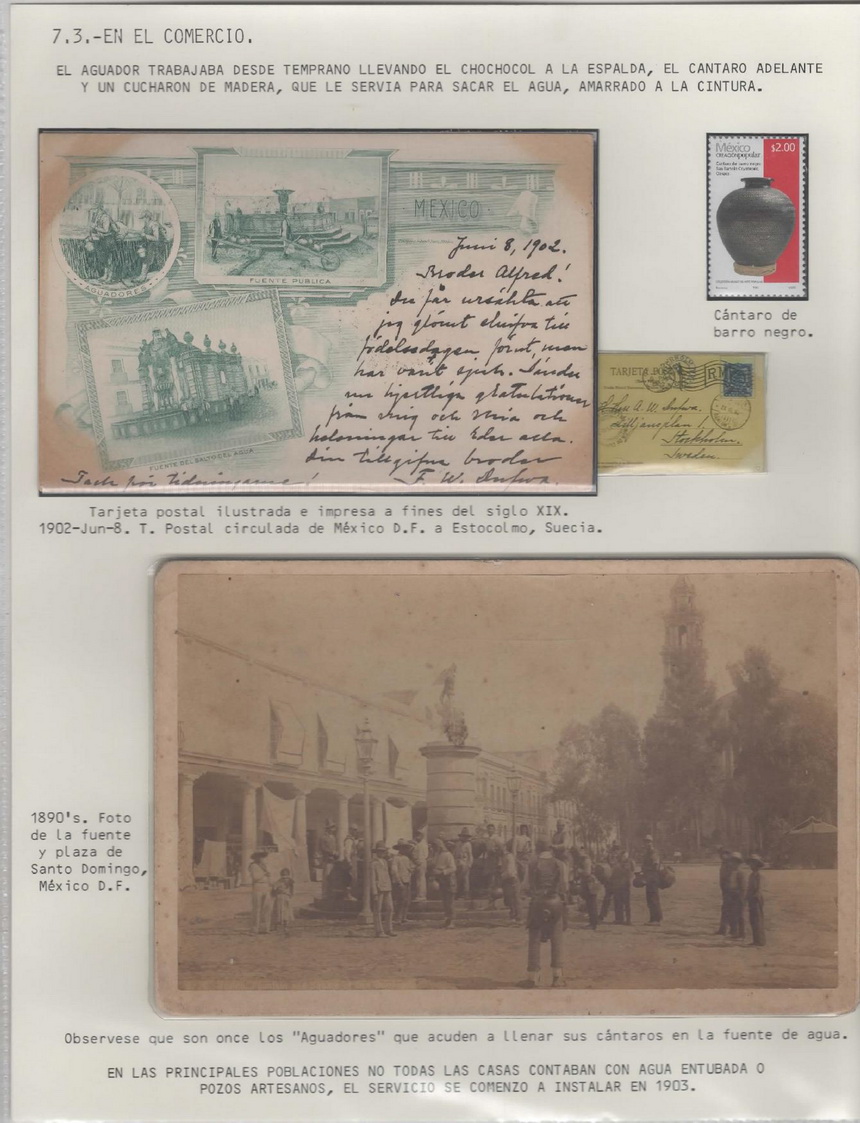 7.3.-EN EL COMERCIO.
EL AGUADOR TRABAJABA DESDE TEMPRANO LLEVANDO EL CHOCHOCOL A LA ESPALDA, EL CANTARO ADELANTE
Y UN CUCHARON DE MADERA, QUE LE SERVIA PARA SACAR EL AGUA, AMARRADO A LA CINTURA.
AGUADORES
FUENTE PUBLICA
MEXICO
FUENTE DEL SALTO DEL AGUA
Juni 8, 1902.
Broder Alfred!
Du får ursäkta att
jag glömt skrifva till
födelsedagen förut, men
har varit sjuk. Sänder
nu hjertliga gratulationer
från mig och Mia och
helsningar till Eder alla.
Din tillgifne broder
F. W.
Tack för tidningarne!
México
creación popular
$2.00
Cántaro de
barro negro.
TARJETA
A. W.
Lilljansplan 1
Stockholm.
Sweden.
Tarjeta postal ilustrada e impresa a fines del siglo XIX.
1902-Jun-8. T. Postal circulada de México D.F. a Estocolmo, Suecia.
1890's. Foto
de la fuente
y plaza de
Santo Domingo,
México D.F.
Observese que son once los "Aguadores" que acuden a llenar sus cántaros en la fuente de agua.
EN LAS PRINCIPALES POBLACIONES NO TODAS LAS CASAS CONTABAN CON AGUA ENTUBADA O
POZOS ARTESANOS, EL SERVICIO SE COMENZO A INSTALAR EN 1903.